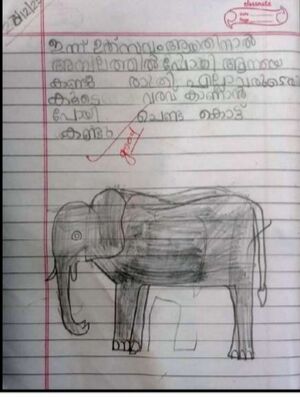 classmate
ഇന്ന് ഉത്സവം ആയതിനാൽ
അമ്പലത്തിൽ പോയി ആനയെ
കണ്ടു രാത്രി എല്ലാവരുടെയും
കൂടെ വരവ് കാണാൻ
പോയി ചെണ്ട കൊട്ട്
കണ്ടു
good